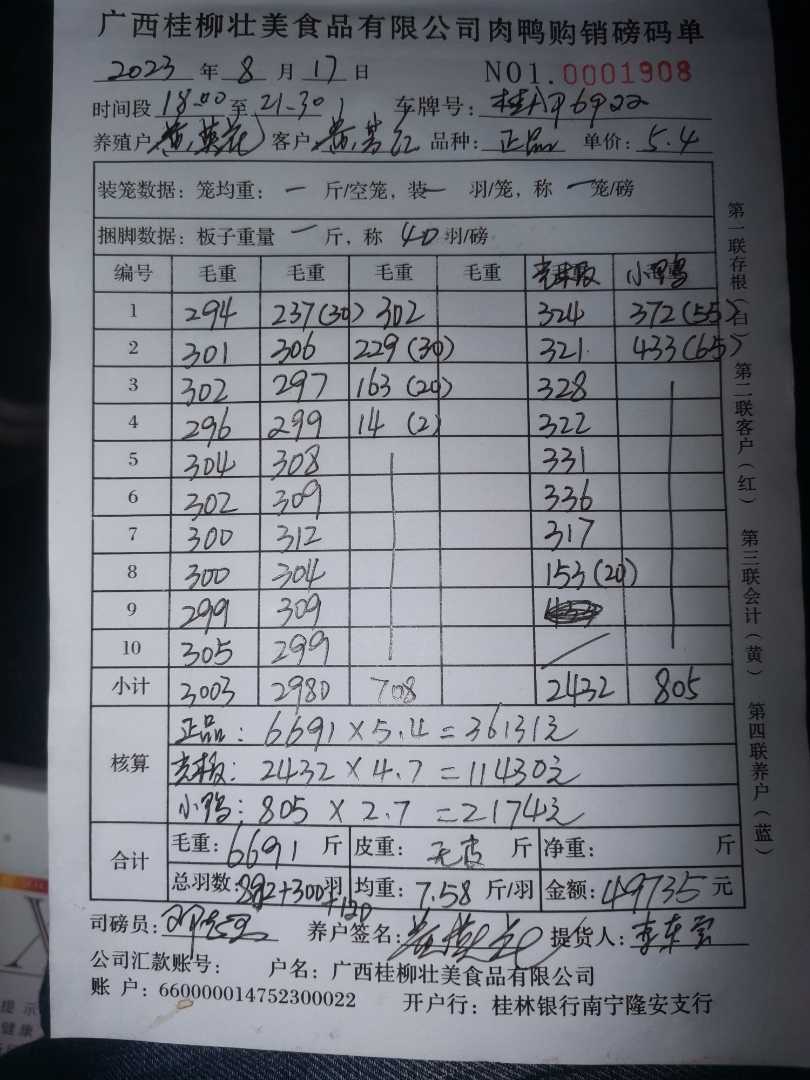 广西桂柳壮美食品有限公司肉鸭购销磅码单
2023 年 8 月 17 日 NO1.0001908
时间段 18-00 至 21-30 车牌号: 桂 6922
养殖户 黄 花 客户 黄 红 品种: 正品 单价: 5.4
装笼数据: 笼均重: 一 斤/空笼, 装一 羽/笼, 称 一笼/磅
捆脚数据: 板子重量 一 斤, 称 40 羽/磅
编号 毛重 毛重 毛重 毛重 壳秣板 小鸭
1 294 237(30) 302 324 372(55)
2 301 306 229(30) 321 433(65)
3 302 297 163(20) 328
4 296 299 14 (2) 322
5 304 308 331
6 302 309 336
7 300 312 317
8 300 304 153(20)
9 299 309
10 305 299
小计 3003 2980 708 2432 805
核算 正品: 6691×5.4=36131元
板: 2432×4.7=11430元
小鸭: 805×2.7=2174元
合计 毛重: 6691 斤 皮重: 无皮 斤 净重: 斤
总羽数: 892+300羽 均重: 7.58 斤/羽 金额: 49735 元
+120
司磅员: 养户签名: 黄 花 提货人: 李东
公司汇款账号: 户名: 广西桂柳壮美食品有限公司
账 户: 660000014752300022 开户行: 桂林银行南宁隆安支行
第一联存根(白) 第二联客户(红) 第三联会计(黄) 第四联养户(蓝)
提示
健康